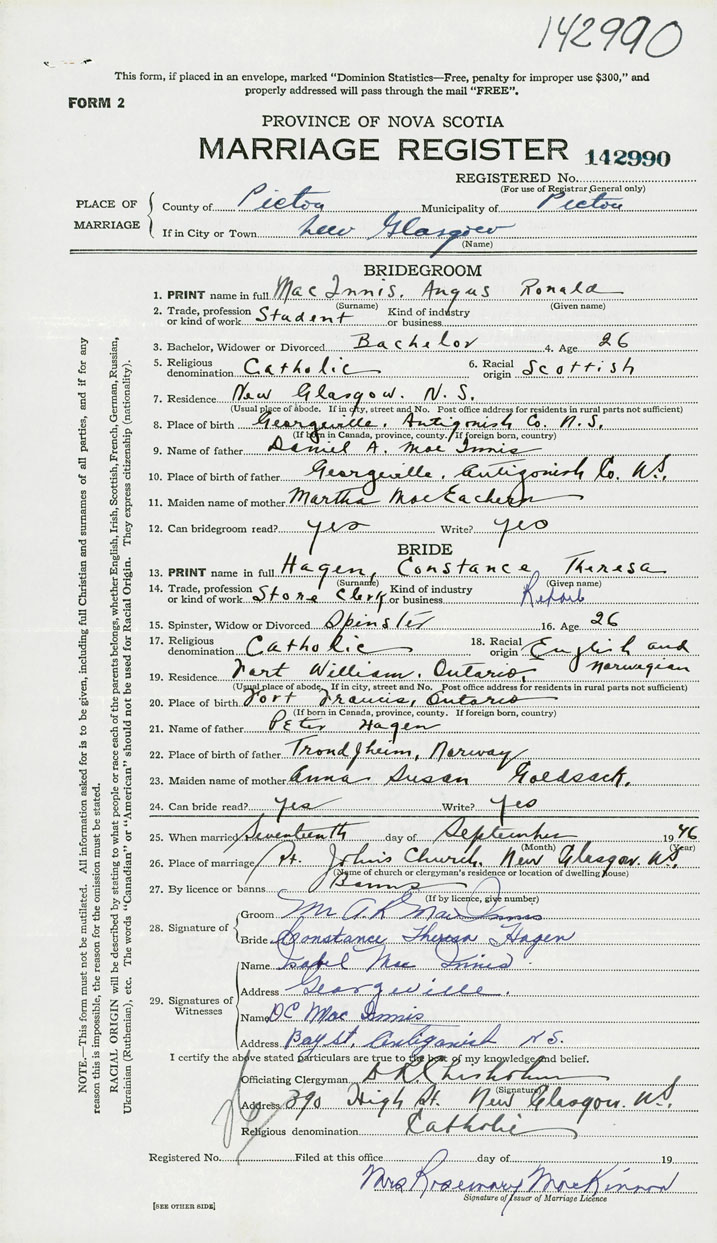 142990
This form, if placed in an envelope, marked "Dominion Statistics—Free, penalty for improper use $300," and
properly addressed will pass through the mail "FREE".
FORM 2
PROVINCE OF NOVA SCOTIA
MARRIAGE REGISTER 142990
REGISTERED No.
(For use of Registrar General only)
PLACE OF MARRIAGE
County of Pictou Municipality of Pictou
If in City or Town New Glasgow
(Name)
BRIDEGROOM
1. PRINT name in full Mac Innis, Angus Ronald
(Surname) (Given name)
2. Trade, profession or kind of work Student Kind of industry or business
3. Bachelor, Widower or Divorced Bachelor 4. Age 26
5. Religious denomination Catholic 6. Racial origin Scottish
7. Residence New Glasgow. N. S.
(Usual place of abode. If in city, street and No. Post office address for residents in rural parts not sufficient)
8. Place of birth Georgeville, Antigonish Co. N. S.
(If born in Canada, province, county. If foreign born, country)
9. Name of father Daniel A. Mac Innis
10. Place of birth of father Georgeville, Antigonish Co. N.S.
11. Maiden name of mother Martha MacEachern
12. Can bridegroom read? yes Write? yes
BRIDE
13. PRINT name in full Hagen, Constance Theresa
(Surname) (Given name)
14. Trade, profession or kind of work Store Clerk Kind of industry or business
15. Spinster, Widow or Divorced Spinster 16. Age 26
17. Religious denomination Catholic 18. Racial origin English and Norwegian
19. Residence Fort William, Ontario,
(Usual place of abode. If in city, street and No. Post office address for residents in rural parts not sufficient)
20. Place of birth Fort Francis, Ontario
(If born in Canada, province, county. If foreign born, country)
21. Name of father Peter Hagen
22. Place of birth of father Trondjheim, Norway
23. Maiden name of mother Anna Susan Goldsack.
24. Can bride read? yes Write? yes
25. When married Seventeenth day of September 1946
(Month) (Year)
26. Place of marriage St. John's Church, New Glasgow. N.S.
(Name of church or clergyman's residence or location of dwelling house)
27. By licence or banns Banns
(If by licence, give number)
28. Signature of
Groom Mr A. R Mac Innis
Bride Constance Theresa Hagen
29. Signatures of Witnesses
Name Isabel Mac Innis
Address Georgeville.
Name DC Mac Innis
Address Bay St. Antigonish N.S.
I certify the above stated particulars are true to the best of my knowledge and belief.
Officiating Clergyman D R Chisholm
(Signature)
Address 390 High St. New Glasgow. N.S.
Religious denomination Catholic
Registered No. Filed at this office day of 19
Mrs Rosemary MacKinnon
Signature of Issuer of Marriage Licence
[SEE OTHER SIDE]
NOTE.—This form must not be mutilated. All information asked for is to be given, including full Christian and surnames of all parties, and if for any
reason this is impossible, the reason for the omission must be stated.
RACIAL ORIGIN will be described by stating to what people or race each of the parents belongs, whether English, Irish, Scottish, French, German, Russian,
Ukrainian (Ruthenian), etc. The words "Canadian" or "American" should not be used for Racial Origin. They express citizenship (nationality).